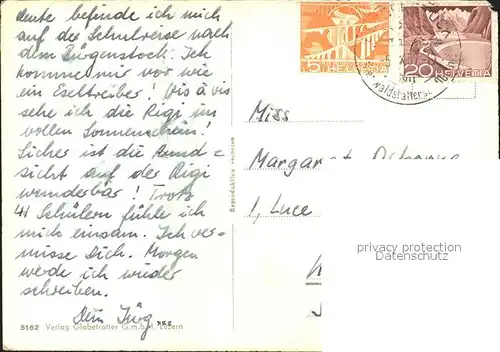 Heute befinde ich mich
auf der Schulreise nach
dem Bürgenstock. Ich
komme mir vor wie
ein Eseltreiber! Vis à vis
sehe ich die Rigi im
vollen Sonnenschein!
Sicher ist die Rund=
sicht auf der Rigi
wunderbar! Trotz
41 Schülern fühle ich
mich einsam. Ich ver-
misse Dich. Morgen
werde ich wieder
schreiben.
Dein Jürg
5162 Verlag Globetrotter G.m.b.H. Luzern
Reproduktion verboten
5 HELVETIA
20 HELVETIA
Miss
Margaret
1, Luce
privacy protection
Datenschutz